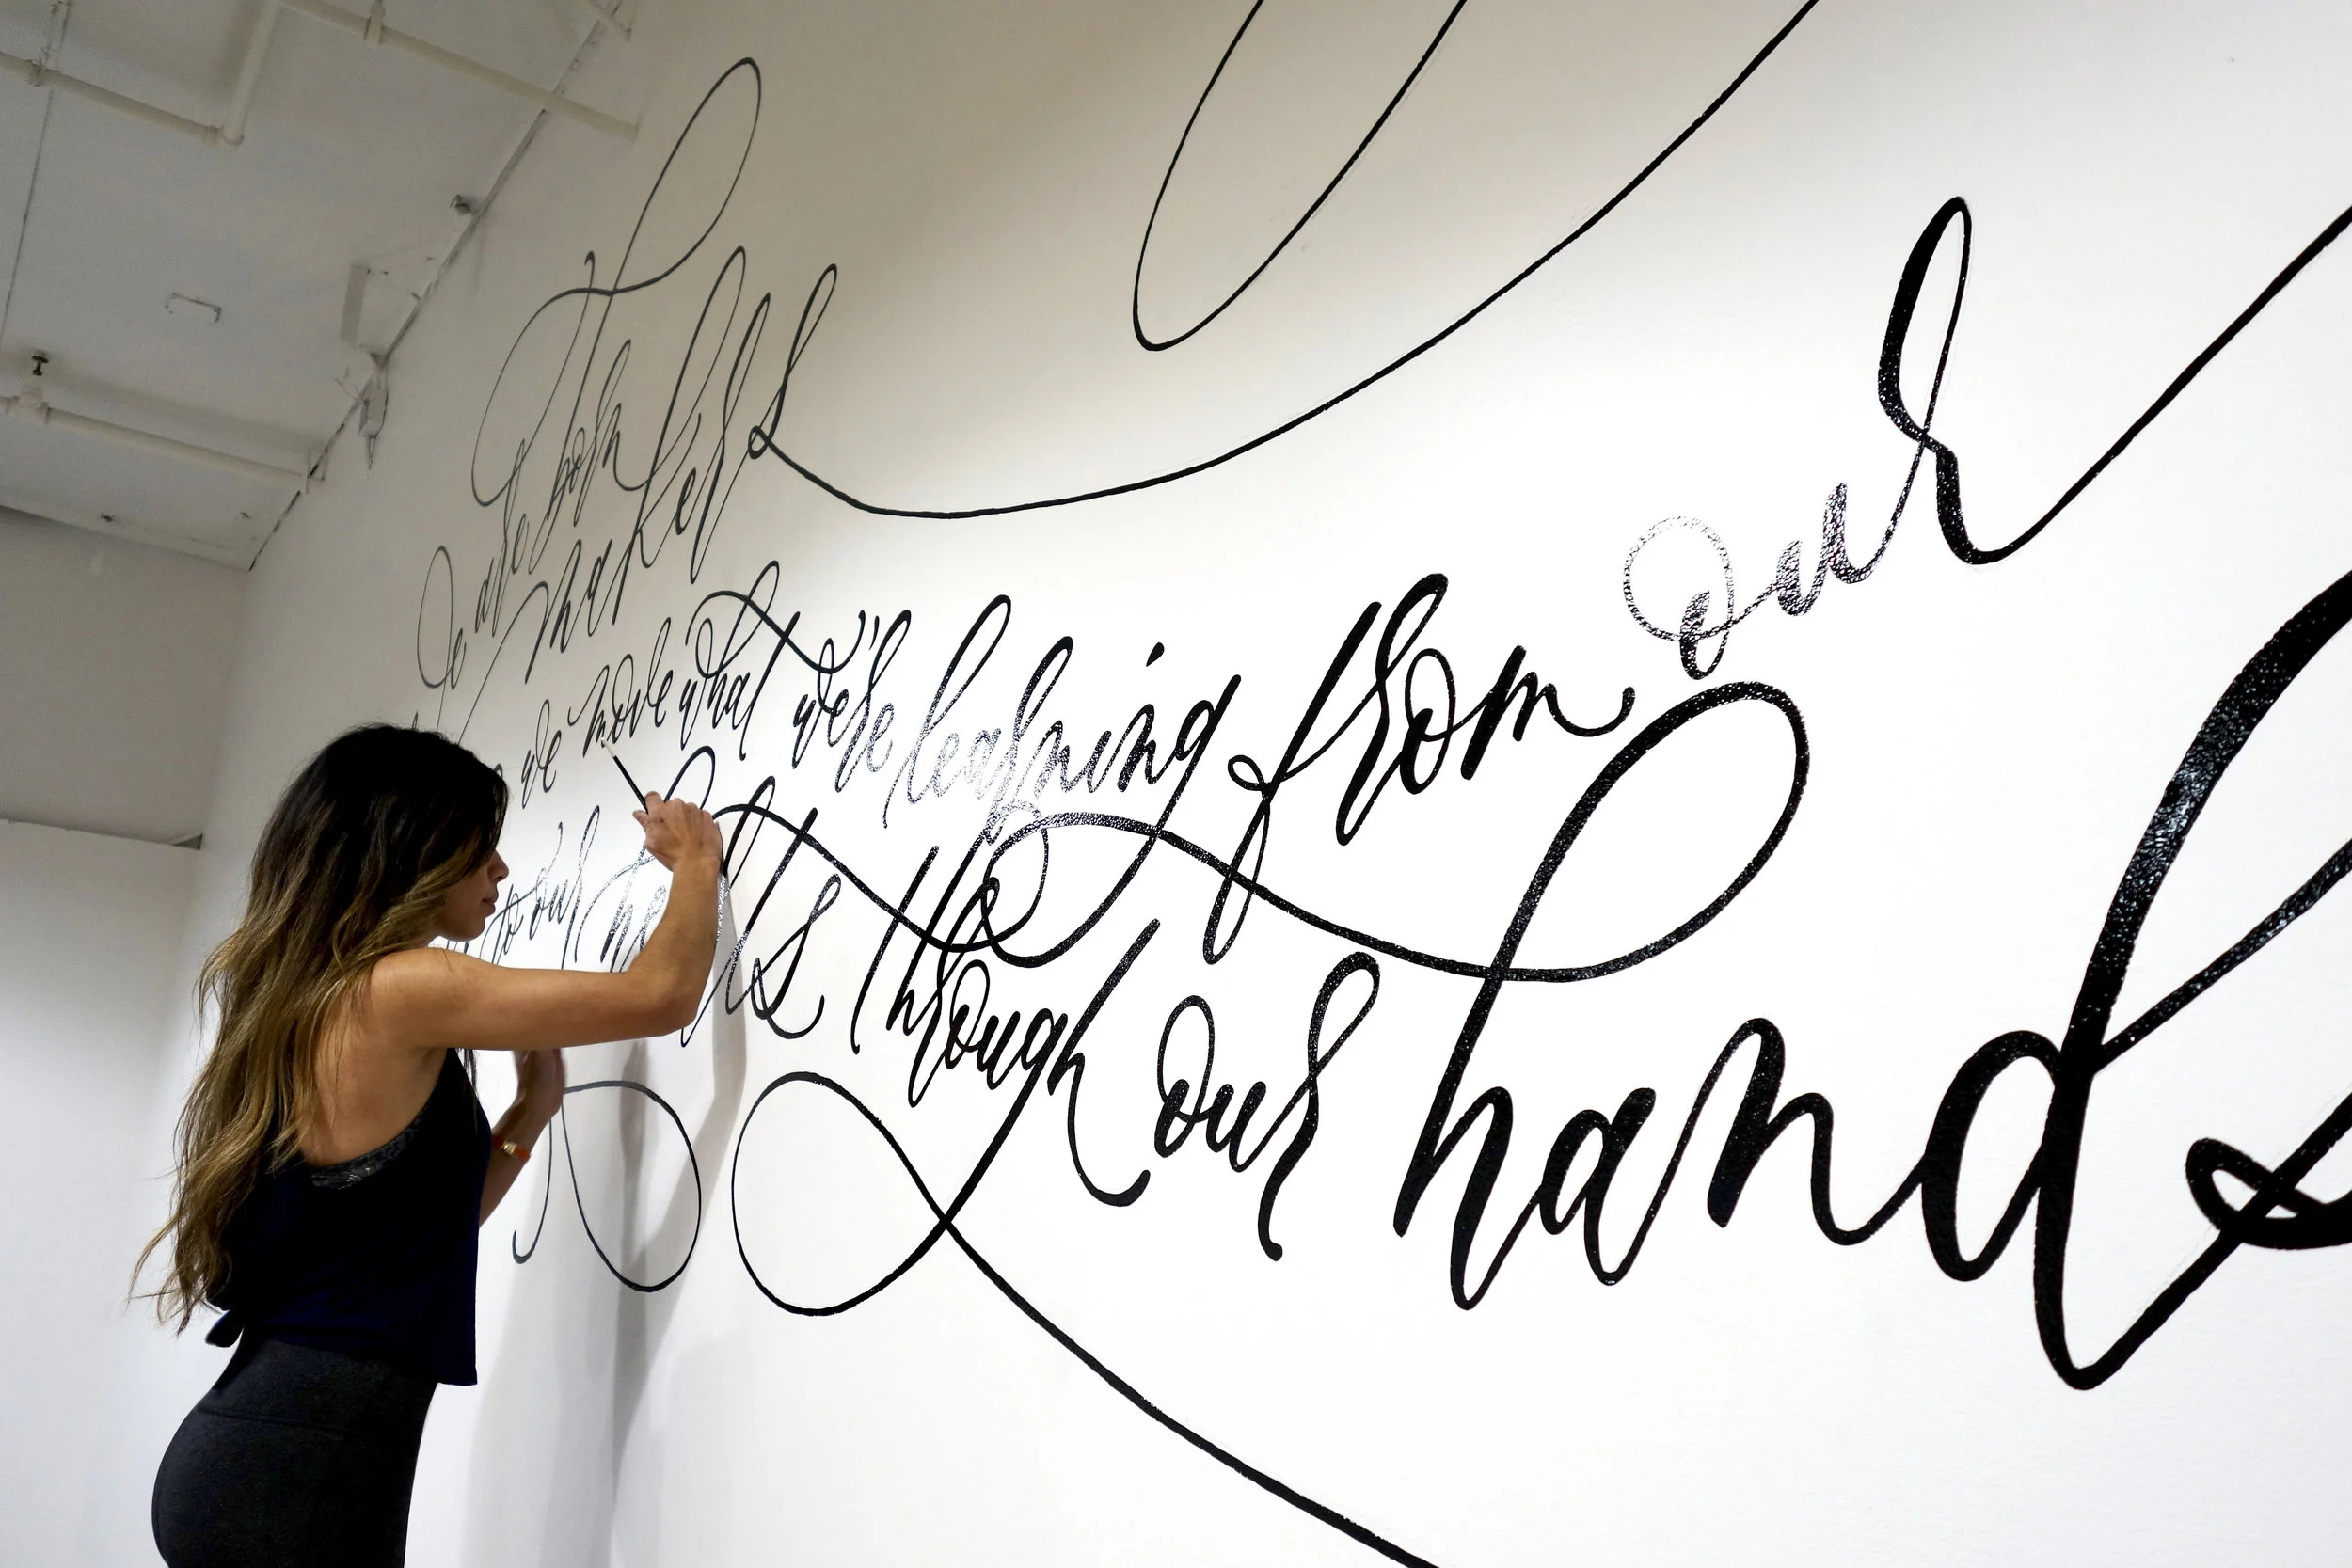 are born
makers
we move what we're learning from our
to our hearts through our hands